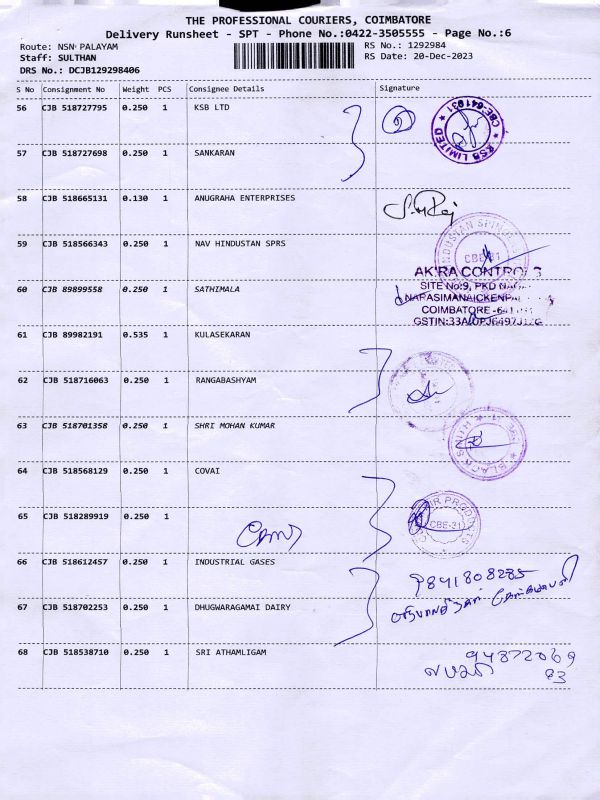 THE PROFESSIONAL COURIERS, COIMBATORE
Delivery Runsheet - SPT - Phone No.:0422-3505555 - Page No.:6
Route: NSN PALAYAM RS No.: 1292984
Staff: SULTHAN RS Date: 20-Dec-2023
DRS No.: DCJB129298406
S No Consignment No Weight PCS Consignee Details Signature
56 CJB 518727795 0.250 1 KSB LTD
KSB LIMITED ★ CBE-641031 ★
57 CJB 518727698 0.250 1 SANKARAN
58 CJB 518665131 0.130 1 ANUGRAHA ENTERPRISES
59 CJB 518566343 0.250 1 NAV HINDUSTAN SPRS
CBE-31
AKRA CONTROLS
60 CJB 89899558 0.250 1 SATHIMALA
SITE No:9, PKD
COIMBATORE
61 CJB 89982191 0.535 1 KULASEKARAN
62 CJB 518716063 0.250 1 RANGABASHYAM
63 CJB 518701358 0.250 1 SHRI MOHAN KUMAR
64 CJB 518568129 0.250 1 COVAI
65 CJB 518289919 0.250 1
AIR PRODUCTS
CBE-21
66 CJB 518612457 0.250 1 INDUSTRIAL GASES
9841808285
67 CJB 518702253 0.250 1 DHUGWARAGAMAI DAIRY
68 CJB 518538710 0.250 1 SRI ATHAMLIGAM
94872069
83